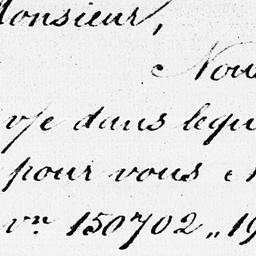 Monsieur,
Nous
v/e dans lequ
pour vous
vn 150702,, 19